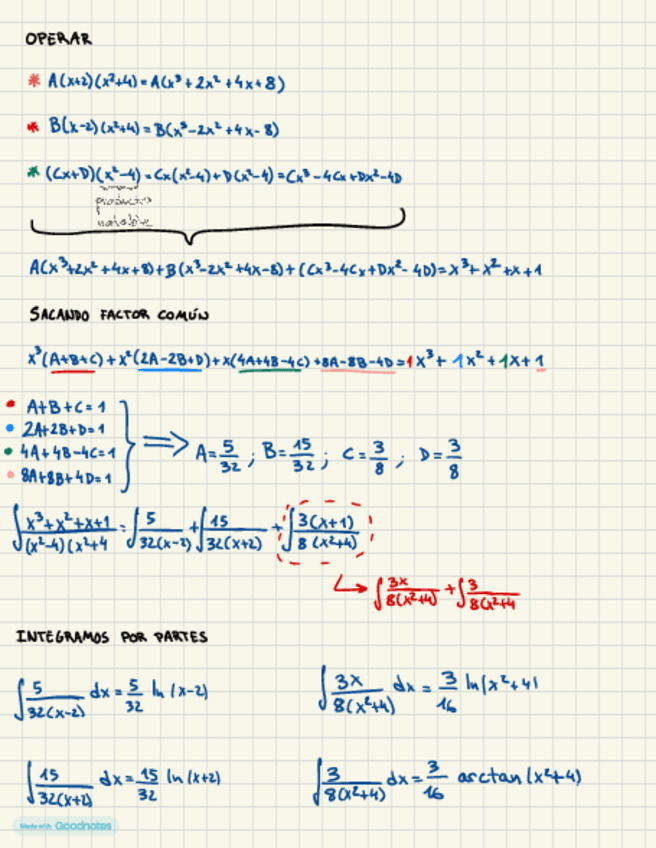 OPERAR
* A(x+2)(x²+4)=A(x³+2x²+4x+8)
* B(x-2)(x²+4)=B(x³-2x²+4x-8)
* (Cx+D)(x²-4)=Cx(x²-4)+D(x²-4)=Cx³-4Cx+Dx²-4D
producto
notable
A(x³+2x²+4x+8)+B(x³-2x²+4x-8)+(Cx³-4Cx+Dx²-4D)=x³+x²+x+1
SACANDO FACTOR COMÚN
x³(A+B+C)+x²(2A-2B+D)+x(4A+4B-4C)+8A-8B-4D=1x³+1x²+1x+1
• A+B+C=1
• 2A+2B+D=1
• 4A+4B-4C=1
• 8A+8B+4D=1
⟹ A=5/32 ; B=15/32 ; C=3/8 ; D=3/8
∫(x³+x²+x+1)/((x²-4)(x²+4 = ∫5/(32(x-2)) + ∫15/(32(x+2)) + ∫3(x+1)/(8(x²+4))
↳ ∫3x/(8(x²+4)) + ∫3/(8(x²+4
INTEGRAMOS POR PARTES
∫5/(32(x-2)) dx = 5/32 ln(x-2)
∫3x/(8(x²+4)) dx = 3/16 ln(x²+4)
∫15/(32(x+2)) dx = 15/32 ln(x+2)
∫3/(8(x²+4)) dx = 3/16 arctan(x²+4)
Made with Goodnotes